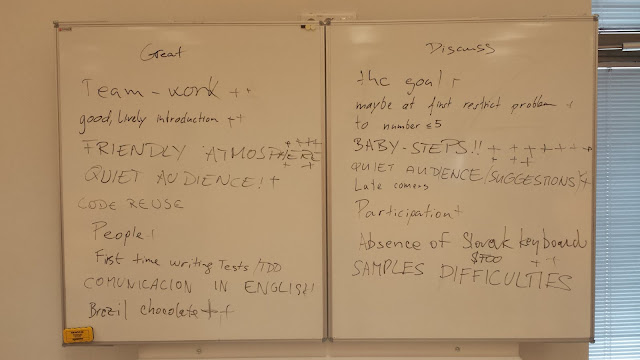 Great
Team-work ++
good, lively introduction ++
FRIENDLY ATMOSPHERE ++++++
QUIET AUDIENCE! +
CODE REUSE
People
First time writing Tests/TDD
COMUNICACION IN ENGLISH
Brazil chocolate +++
Discuss
the goal
maybe at first restrict problem
to number ≤5
BABY-STEPS!!
QUIET AUDIENCE/SUGGESTIONS
Late comers
Participation +
Absence of Slovak keyboard
SAMPLES DIFFICULTIES ++